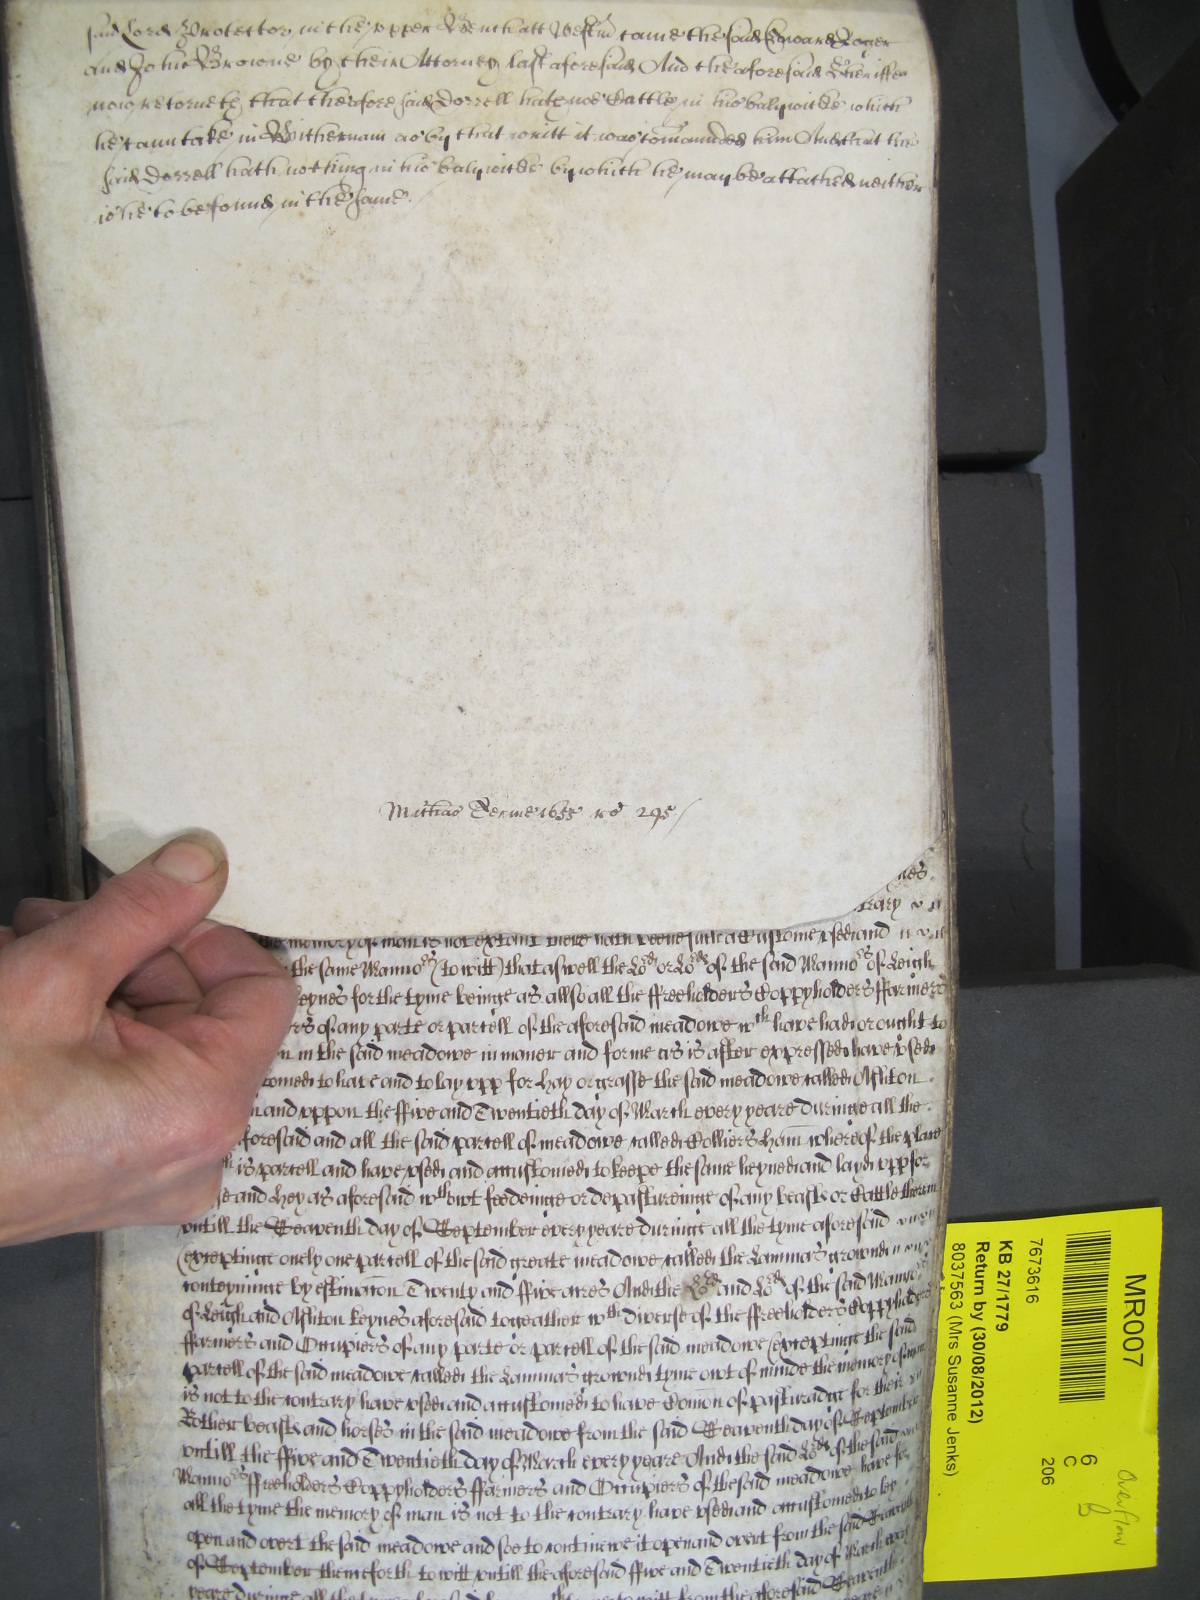 said Lord Protector in the upper Bench att Westm came the said Edward Roger
and John Browne by their Attorney last aforesaid And the aforesaid Sheriffe
now retorneth that the afore said Dorrell hath noe Cattle in his baliwicke which
he cann take in Withernam as by that writt it was commaunded him And that the
said Dorrell hath nothing in his baliwicke by which he may be attached neither
is he to be found in the same
Michās Terme 1655 ro 295
nes
trary
the memory of man is not extant there hath beene such a Custome used and
the same Mannor (to witt) that aswell the Lord or Lords of the said Mannor of Leigh
Keynes for the tyme beinge as allso all the ffreeholders Coppyholders ffarmers
rs of any parte or parcell of the aforesaid meadowe wth have had or ought to
in the said meadowe in maner and forme as is after expressed have used
tomed to have and to lay upp for hay or grasse the said meadowe called Ashton
and uppon the ffive and Twentieth day of March every yeare duringe all the
foresaid and all the said parcell of meadowe called Colliers Ham whereof the place
is parcell and have used and accustomed to keepe the same heyned and layd upp for
se and hey as aforesaid wthowt feedeinge or depastureinge of any beasts or Cattle therein
untill the Seaventh day of September every yeare duringe all the tyme aforesaid
(exceptinge onely one parcell of the said greate meadowe called the Lammas grownd
conteyninge by estimacon Twenty and ffive acres And the Lord and Lords of the said Mannor
of Leigh and Ashton Keynes aforesaid togeather wth diverse of the ffreeholders Coppyholders
ffarmers and Occupiers of any parte or parcell of the said meadowe (exceptinge the said
parcell of the said meadowe called the Lammas grownd tyme owt of minde the memory of man
is not to the contrary have used and accustomed to have Comon of pasturadge for their
Rother beasts and horses in the said meadowe from the said Seaventh day of September
untill the ffive and Twentieth day of March every yeare And the said Lords of the said
Mannors ffreeholders Coppyholders ffarmers and Occupiers of the said meadowe have for
all the tyme the memory of man is not to the contrary have used and accustomed to ley
open and overt the said meadowe and soe to continewe it open and overt from the said Seaventh
of September thenceforth to witt untill the aforesaid ffive and Twentieth day of March every
yeare duringe all the from the aforesaid Seaventh
MR007
7673616
KB 27/1779
Return by (30/08/2012)
8037563 (Mrs Susanne Jenks)
6
C
206
overflow